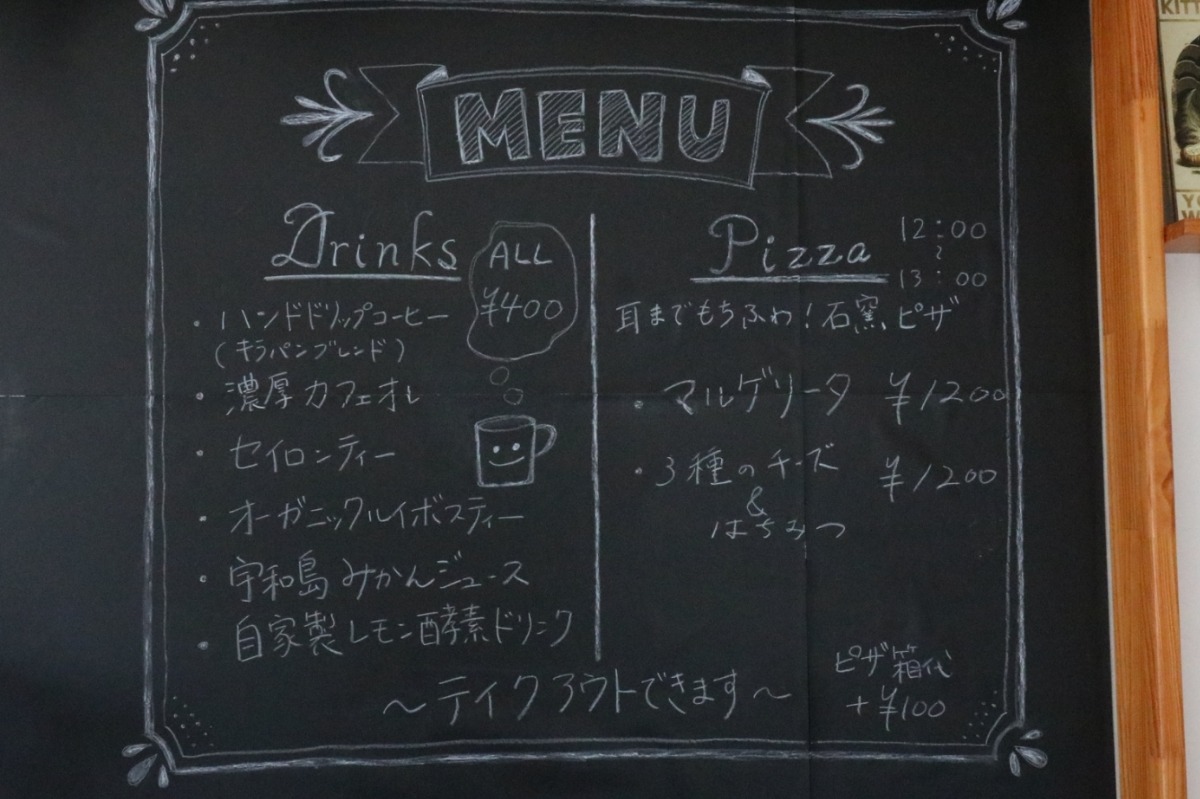 MENU
Drinks
ALL
¥400
・ハンドドリップコーヒー
(キラパンブレンド)
・濃厚カフェオレ
・セイロンティー
・オーガニックルイボスティー
・宇和島みかんジュース
・自家製レモン酵素ドリンク
Pizza
12:00
~
13:00
耳までもちふわ!石窯ピザ
・マルゲリータ ¥1200
・3種のチーズ ¥1200
&
はちみつ
~テイクアウトできます~
ピザ箱代
+¥100
KITT